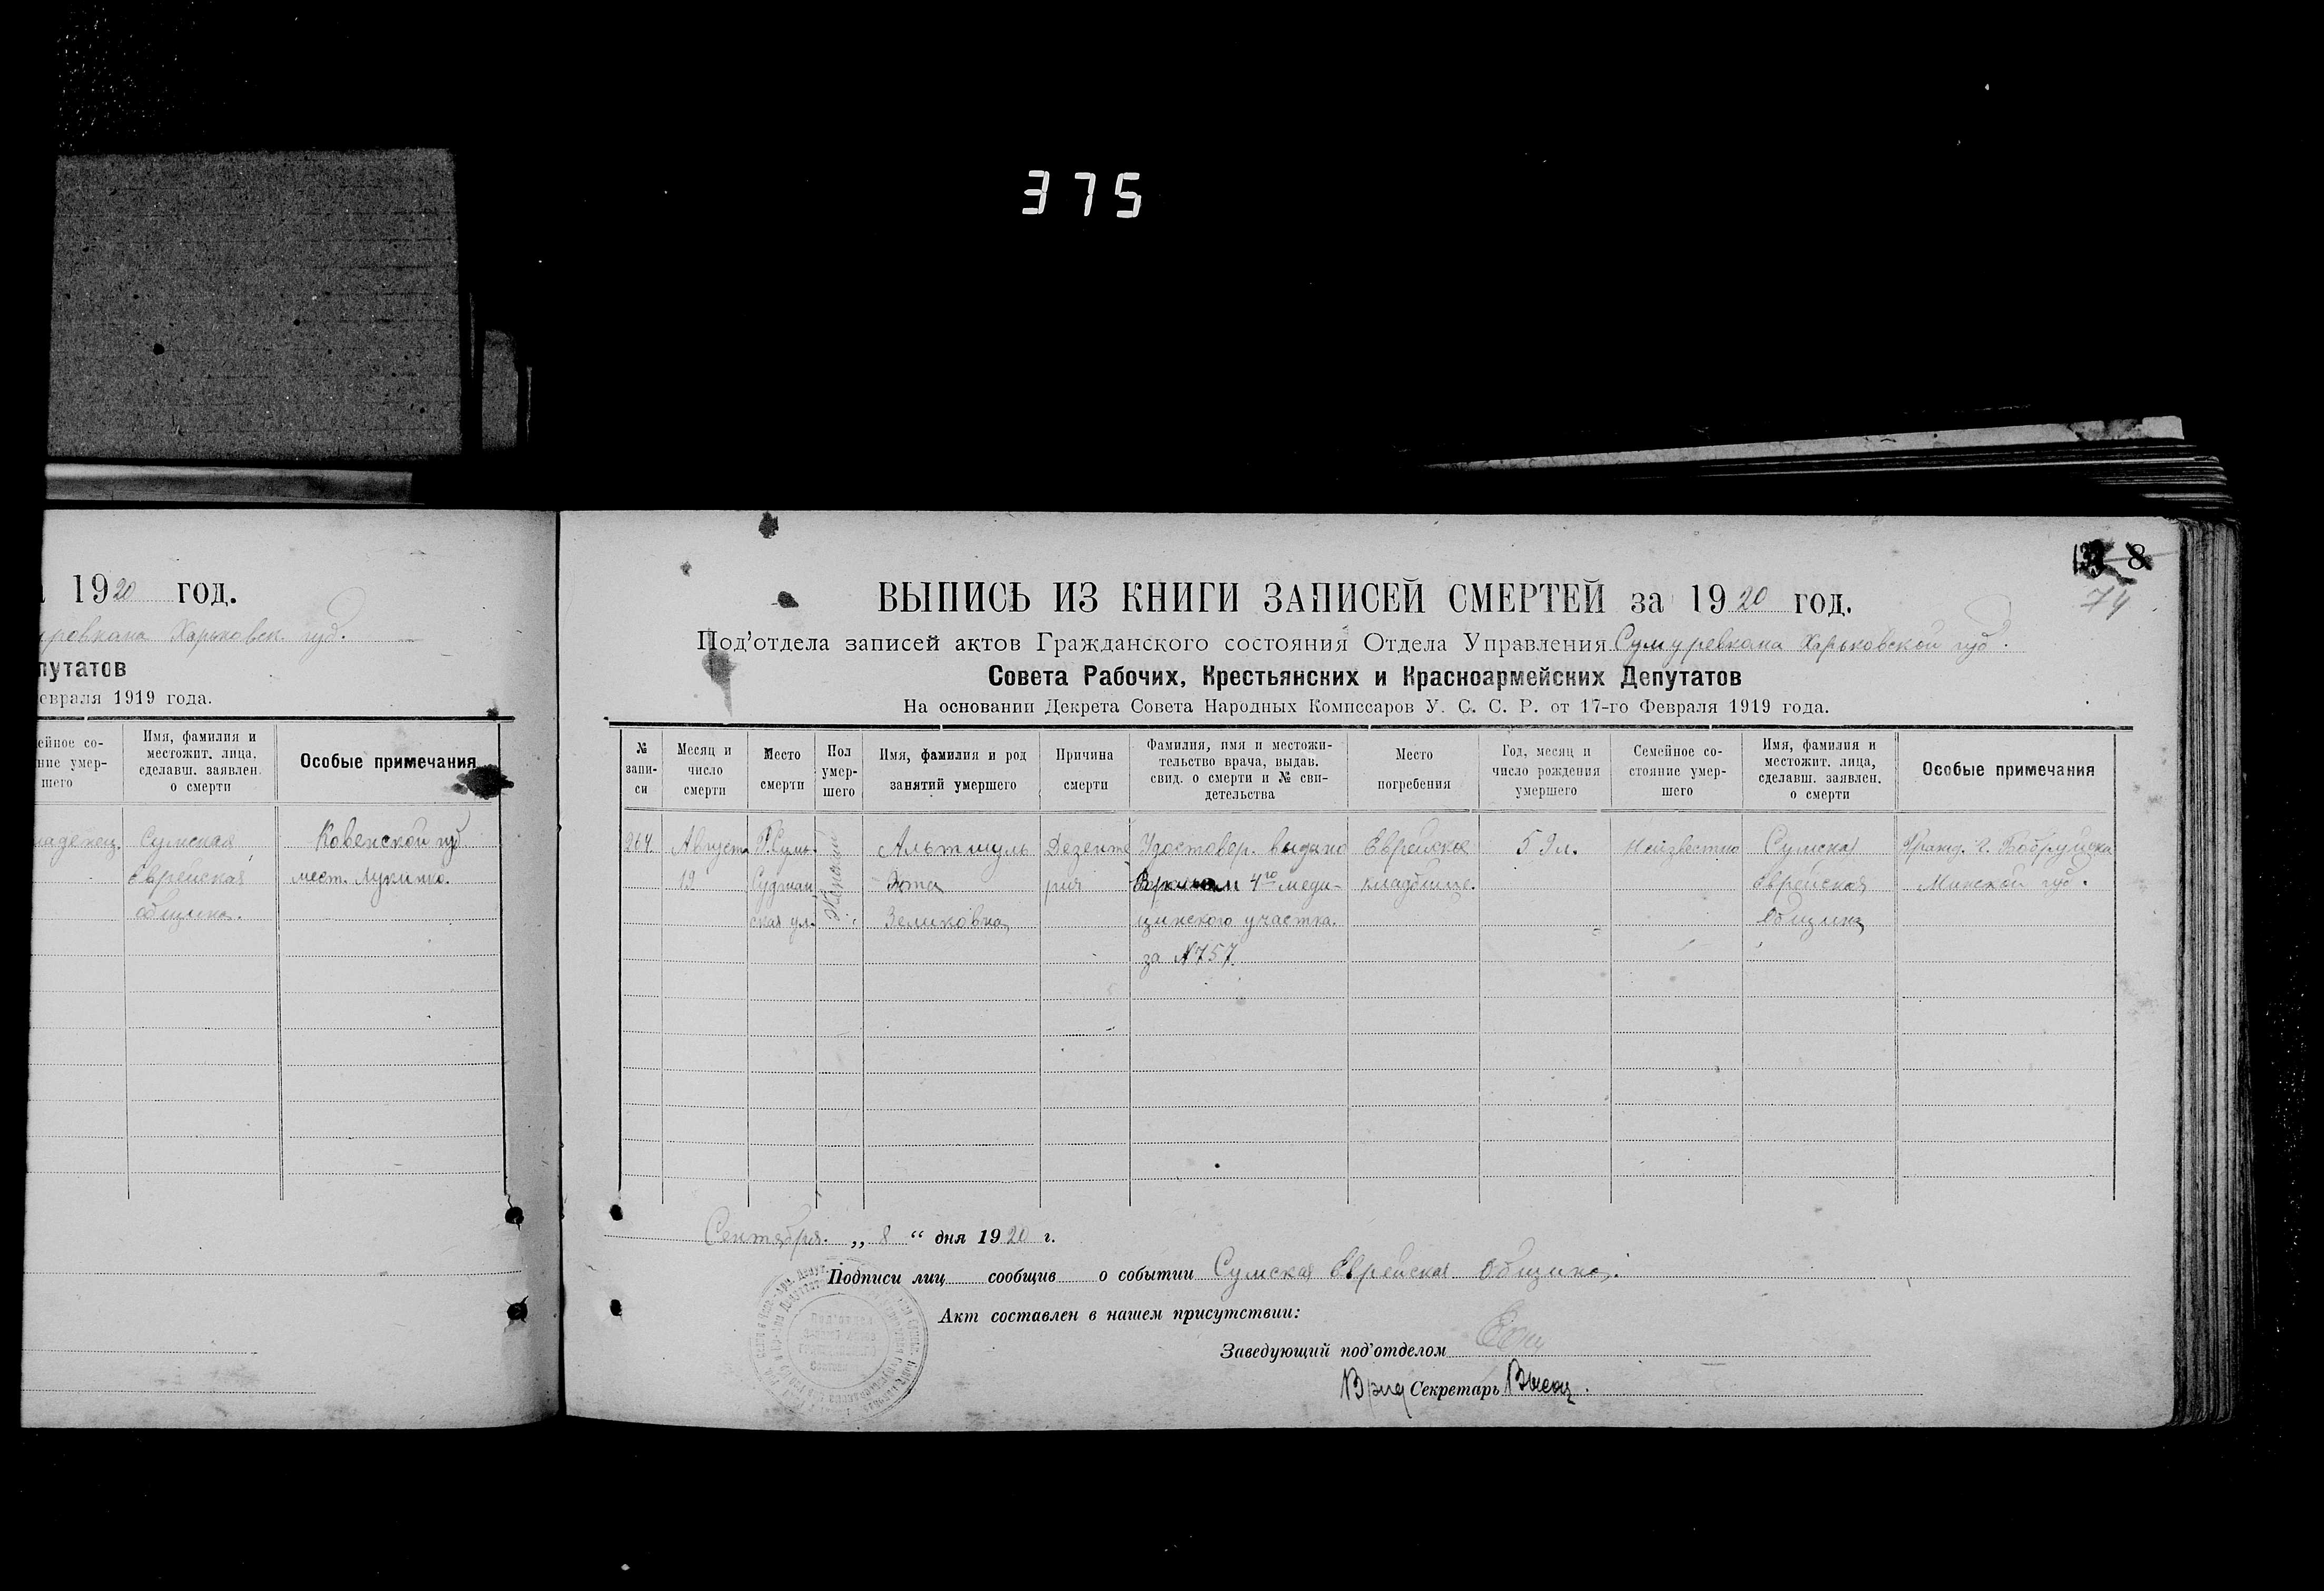 375
1920 год.
Харьковск. губ.
путатов
евраля 1919 года.
ейное со-
ние умер-
шего
Имя, фамилия и
местожит. лица,
сделавш. заявлен.
о смерти
Особые примечания
Сумская
Еврейская
община.
Ковенской губ
мест.
8
74
ВЫПИСЬ ИЗ КНИГИ ЗАПИСЕЙ СМЕРТЕЙ за 1920 год.
Под'отдела записей актов Гражданского состояния Отдела Управления Сумуревкома Харьковской губ.
Совета Рабочих, Крестьянских и Красноармейских Депутатов
На основании Декрета Совета Народных Комиссаров У. С. С. Р. от 17-го Февраля 1919 года.
№
запи-
си
Месяц и
число
смерти
Место
смерти
Пол
умер-
шего
Имя, фамилия и род
занятий умершего
Причина
смерти
Фамилия, имя и местожи-
тельство врача, выдав.
свид. о смерти и № сви-
детельства
Место
погребения
Год, месяц и
число рождения
умершего
Семейное со-
стояние умер-
шего
Имя, фамилия и
местожит. лица,
сделавш. заявлен.
о смерти
Особые примечания
Август
19
Г. Сумы
ская ул.
Женский
Альтшуль
Зеликовна
Дезенте
рия
Удостовер. выдано
Врачом 4го меди-
цинского участка.
за №757.
Еврейское
кладбище.
59л.
Неизвестно
Сумская
Еврейская
Община
Гражд. г. Бобруйска
Минской губ.
Сентября „ 8 “ дня 1920 г.
Подписи лиц сообщив о событии Сумская Еврейская Община.
Акт составлен в нашем присутствии:
Заведующий под'отделом
Врид Секретарь